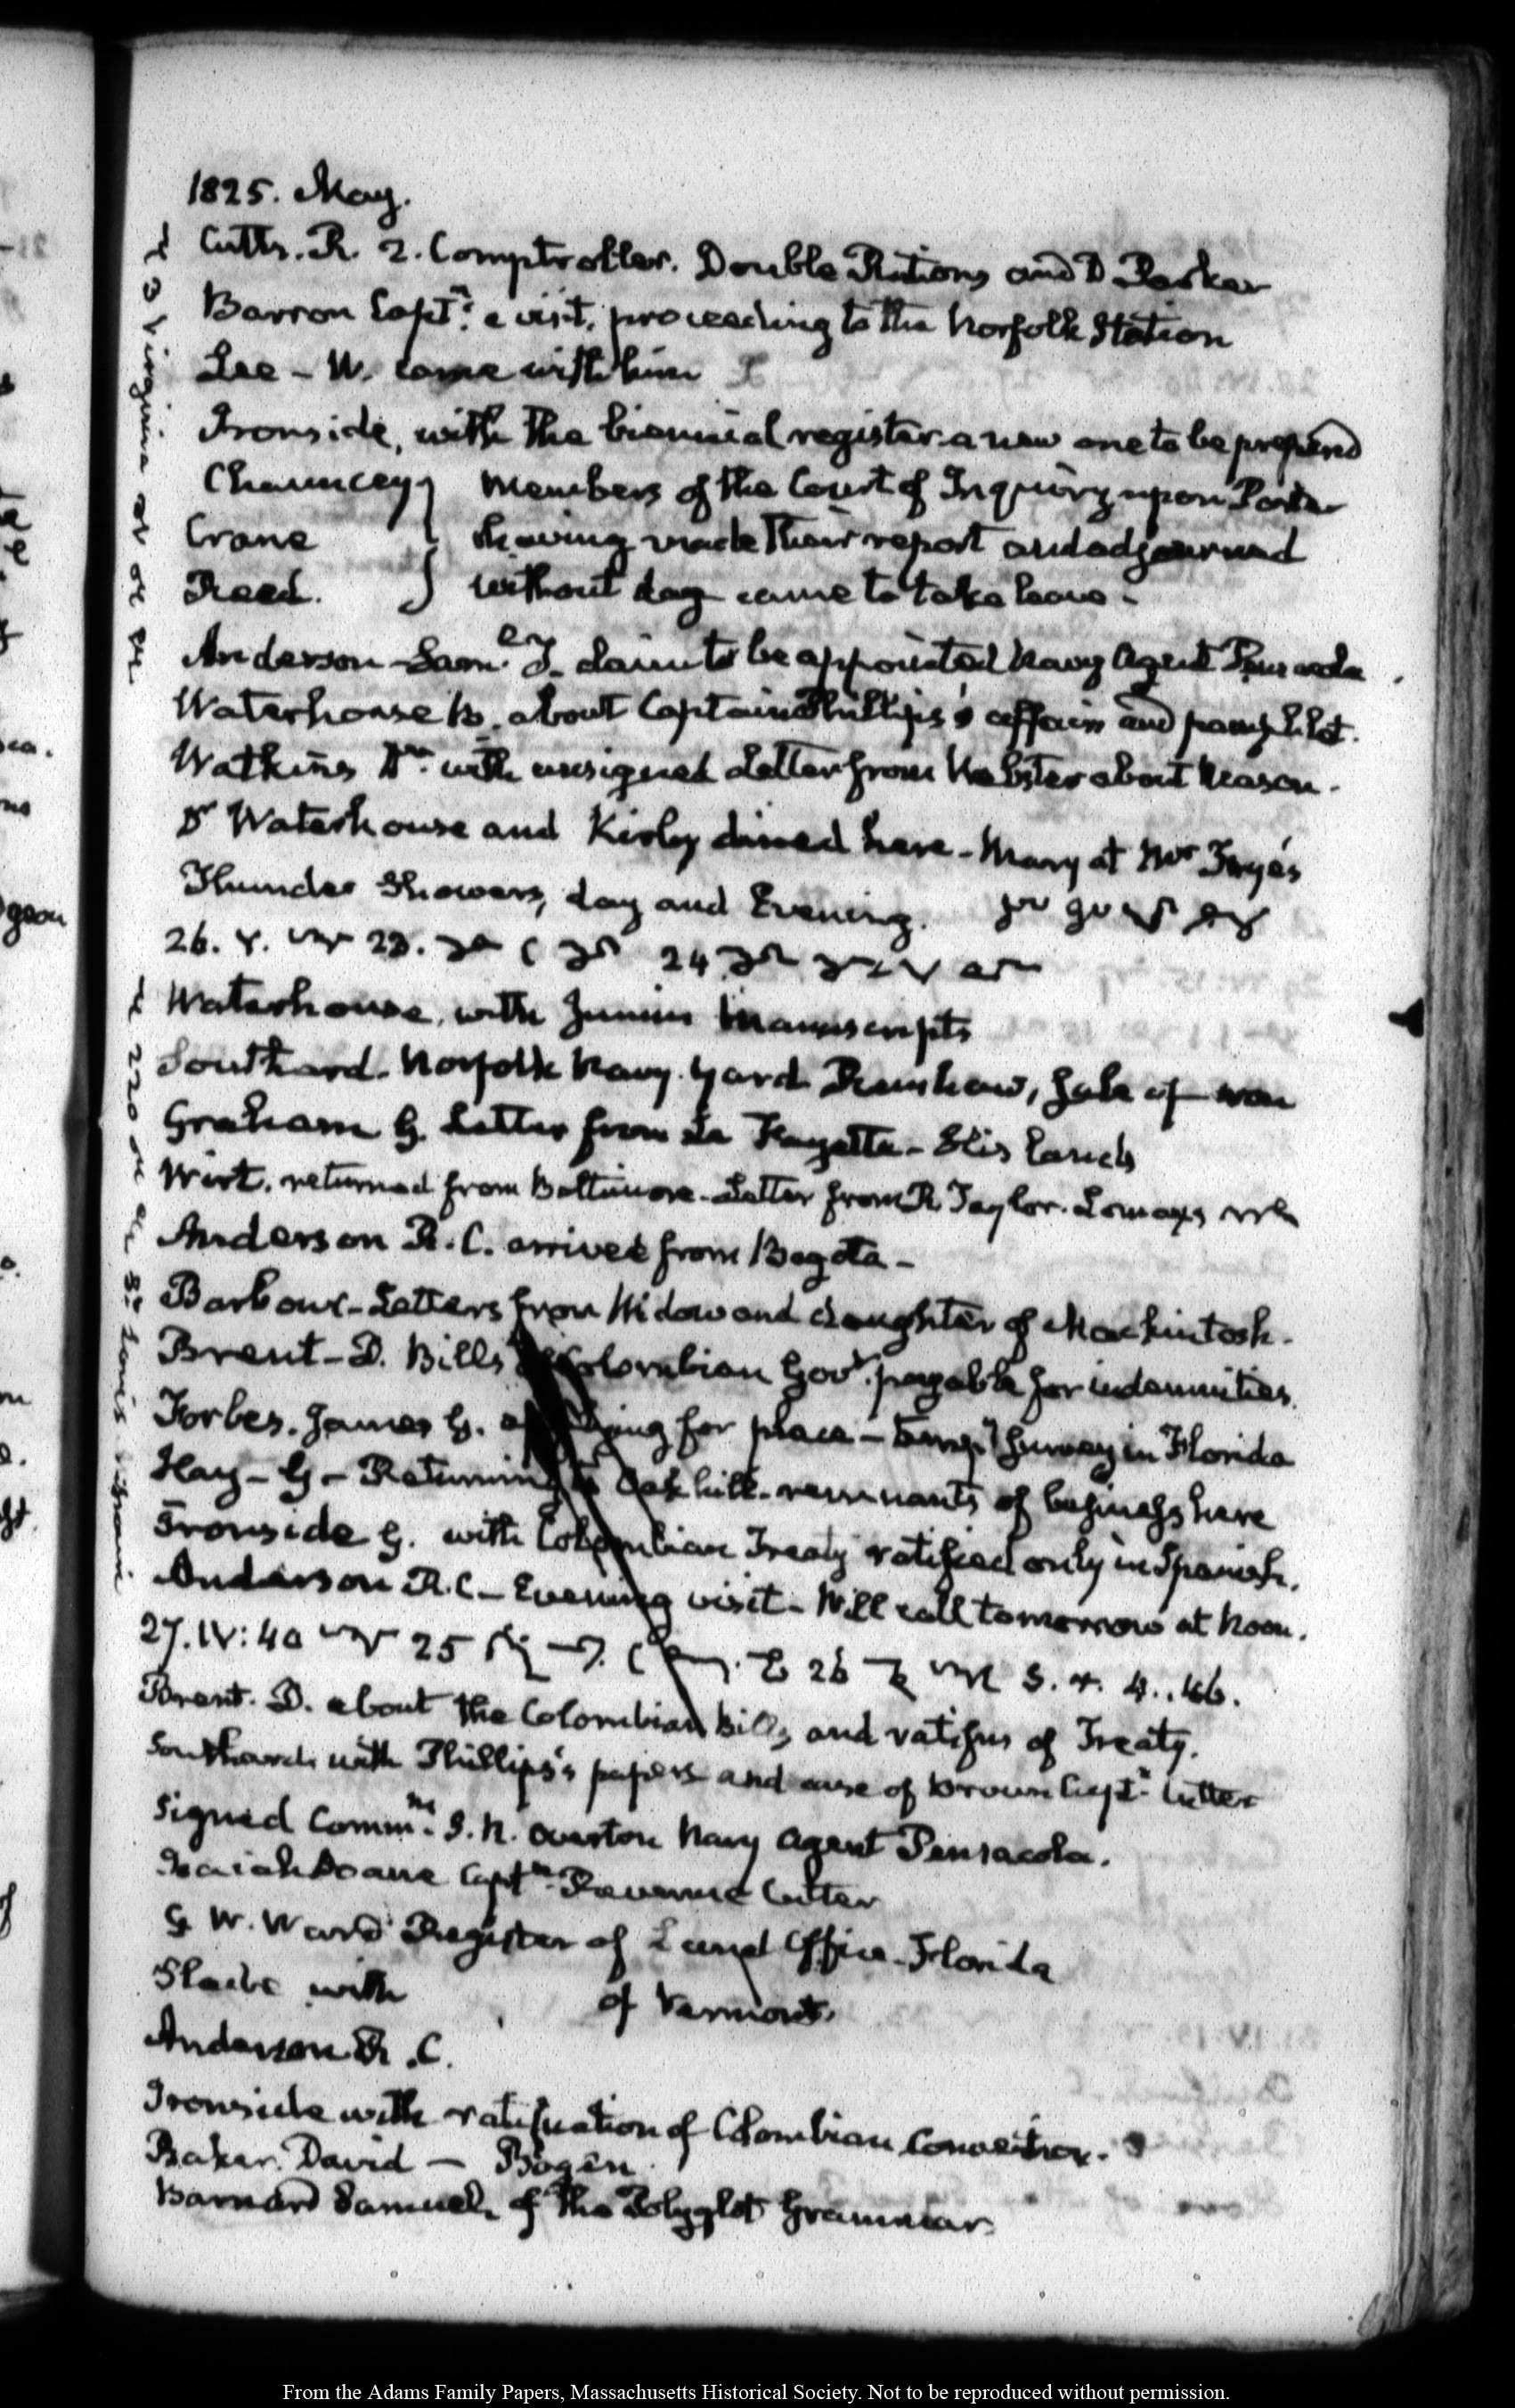 1825. May.
Cutts. R. 2. Comptroller. Double Rations and D Parker
Barron Captn. a visit, proceeding to the Norfolk Station
Lee - W. came with him
Ironside, with the biennial register a new one to be prepared
Chauncey } Members of the Court of Inquiry upon Porter
Crane } having made their report and adjourned
Read. } without day came to take leave -
Anderson - Saml. J. claim to be appointed Navy Agent Pensacola
Waterhouse B. about Captain Phillips's affair and pamphlet.
Watkins Dr. with unsigned Letter from Webster about Mason.
Dr Waterhouse and Kirby dined here - Mary at Mrs Frye's
Thunder Showers, day and Evening.
26. V. 23. 24
Waterhouse, with Junius Manuscripts
Southard. Norfolk Navy Yard Renshaw, Sale of
Graham G. Letter from La Fayette - His lands
Wirt. returned from Baltimore - Letter from R. Taylor. Lomax
Anderson R. C. arrived from Bogota -
Barbour - Letters from Widow and daughter of Mackintosh.
Brent - D. Bills Colombian Govt. payable for indemnities.
Forbes. James G. for place - Survey in Florida
Hay - G - Returning to Oak hill. remnants of business here
Ironside G. with Colombian Treaty ratified only in Spanish.
Anderson R. C - Evening visit - Will call tomorrow at Noon.
27. IV: 40 25 26 S. r. 4..46.
Brent. D. about the Colombian bills, and ratifns of Treaty.
Southard. with Phillips's papers and case of Brown Captn. Cutter
Signed Commns. S. R. Overton Navy Agent Pensacola.
Isaiah Doane Captn. Revenue Cutter
G W. Ward Register of Land Office - Florida
Slade with of Vermont.
Anderson R. C.
Ironside with ratification of Colombian Convention.
Baker. David - Bogen.
Barnard Samuel, of the Polyglot Grammar
From the Adams Family Papers, Massachusetts Historical Society. Not to be reproduced without permission.